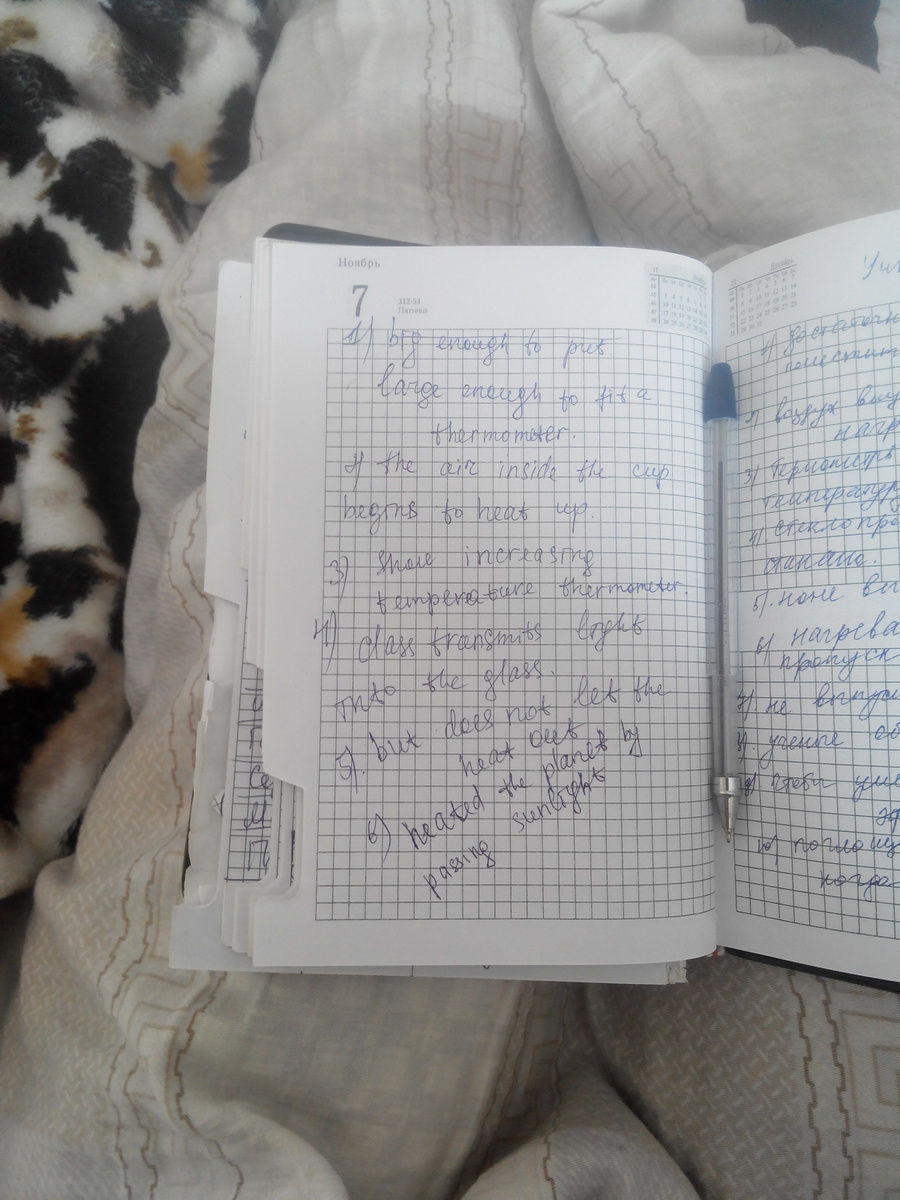 Ноябрь
7
312-54
Пятница
1) big enough to put
large enough to fit a
thermometer.
2) the air inside the cup
begins to heat up.
3) show increasing
temperature thermometer.
4) Class transmits light
into the glass.
5). but does not let the
heat out
6) heated the planet by
passing sunlight
Декабрь
1) достаточн
поместит
2) воздух вну
нагр
3) Термометр
температур
4) стекло про
стакана.
5). но не вы
6) нагрева
пропуск
7) не выпус
8). ученые об
9) чтобы уме
эф
10) поглощ
когда